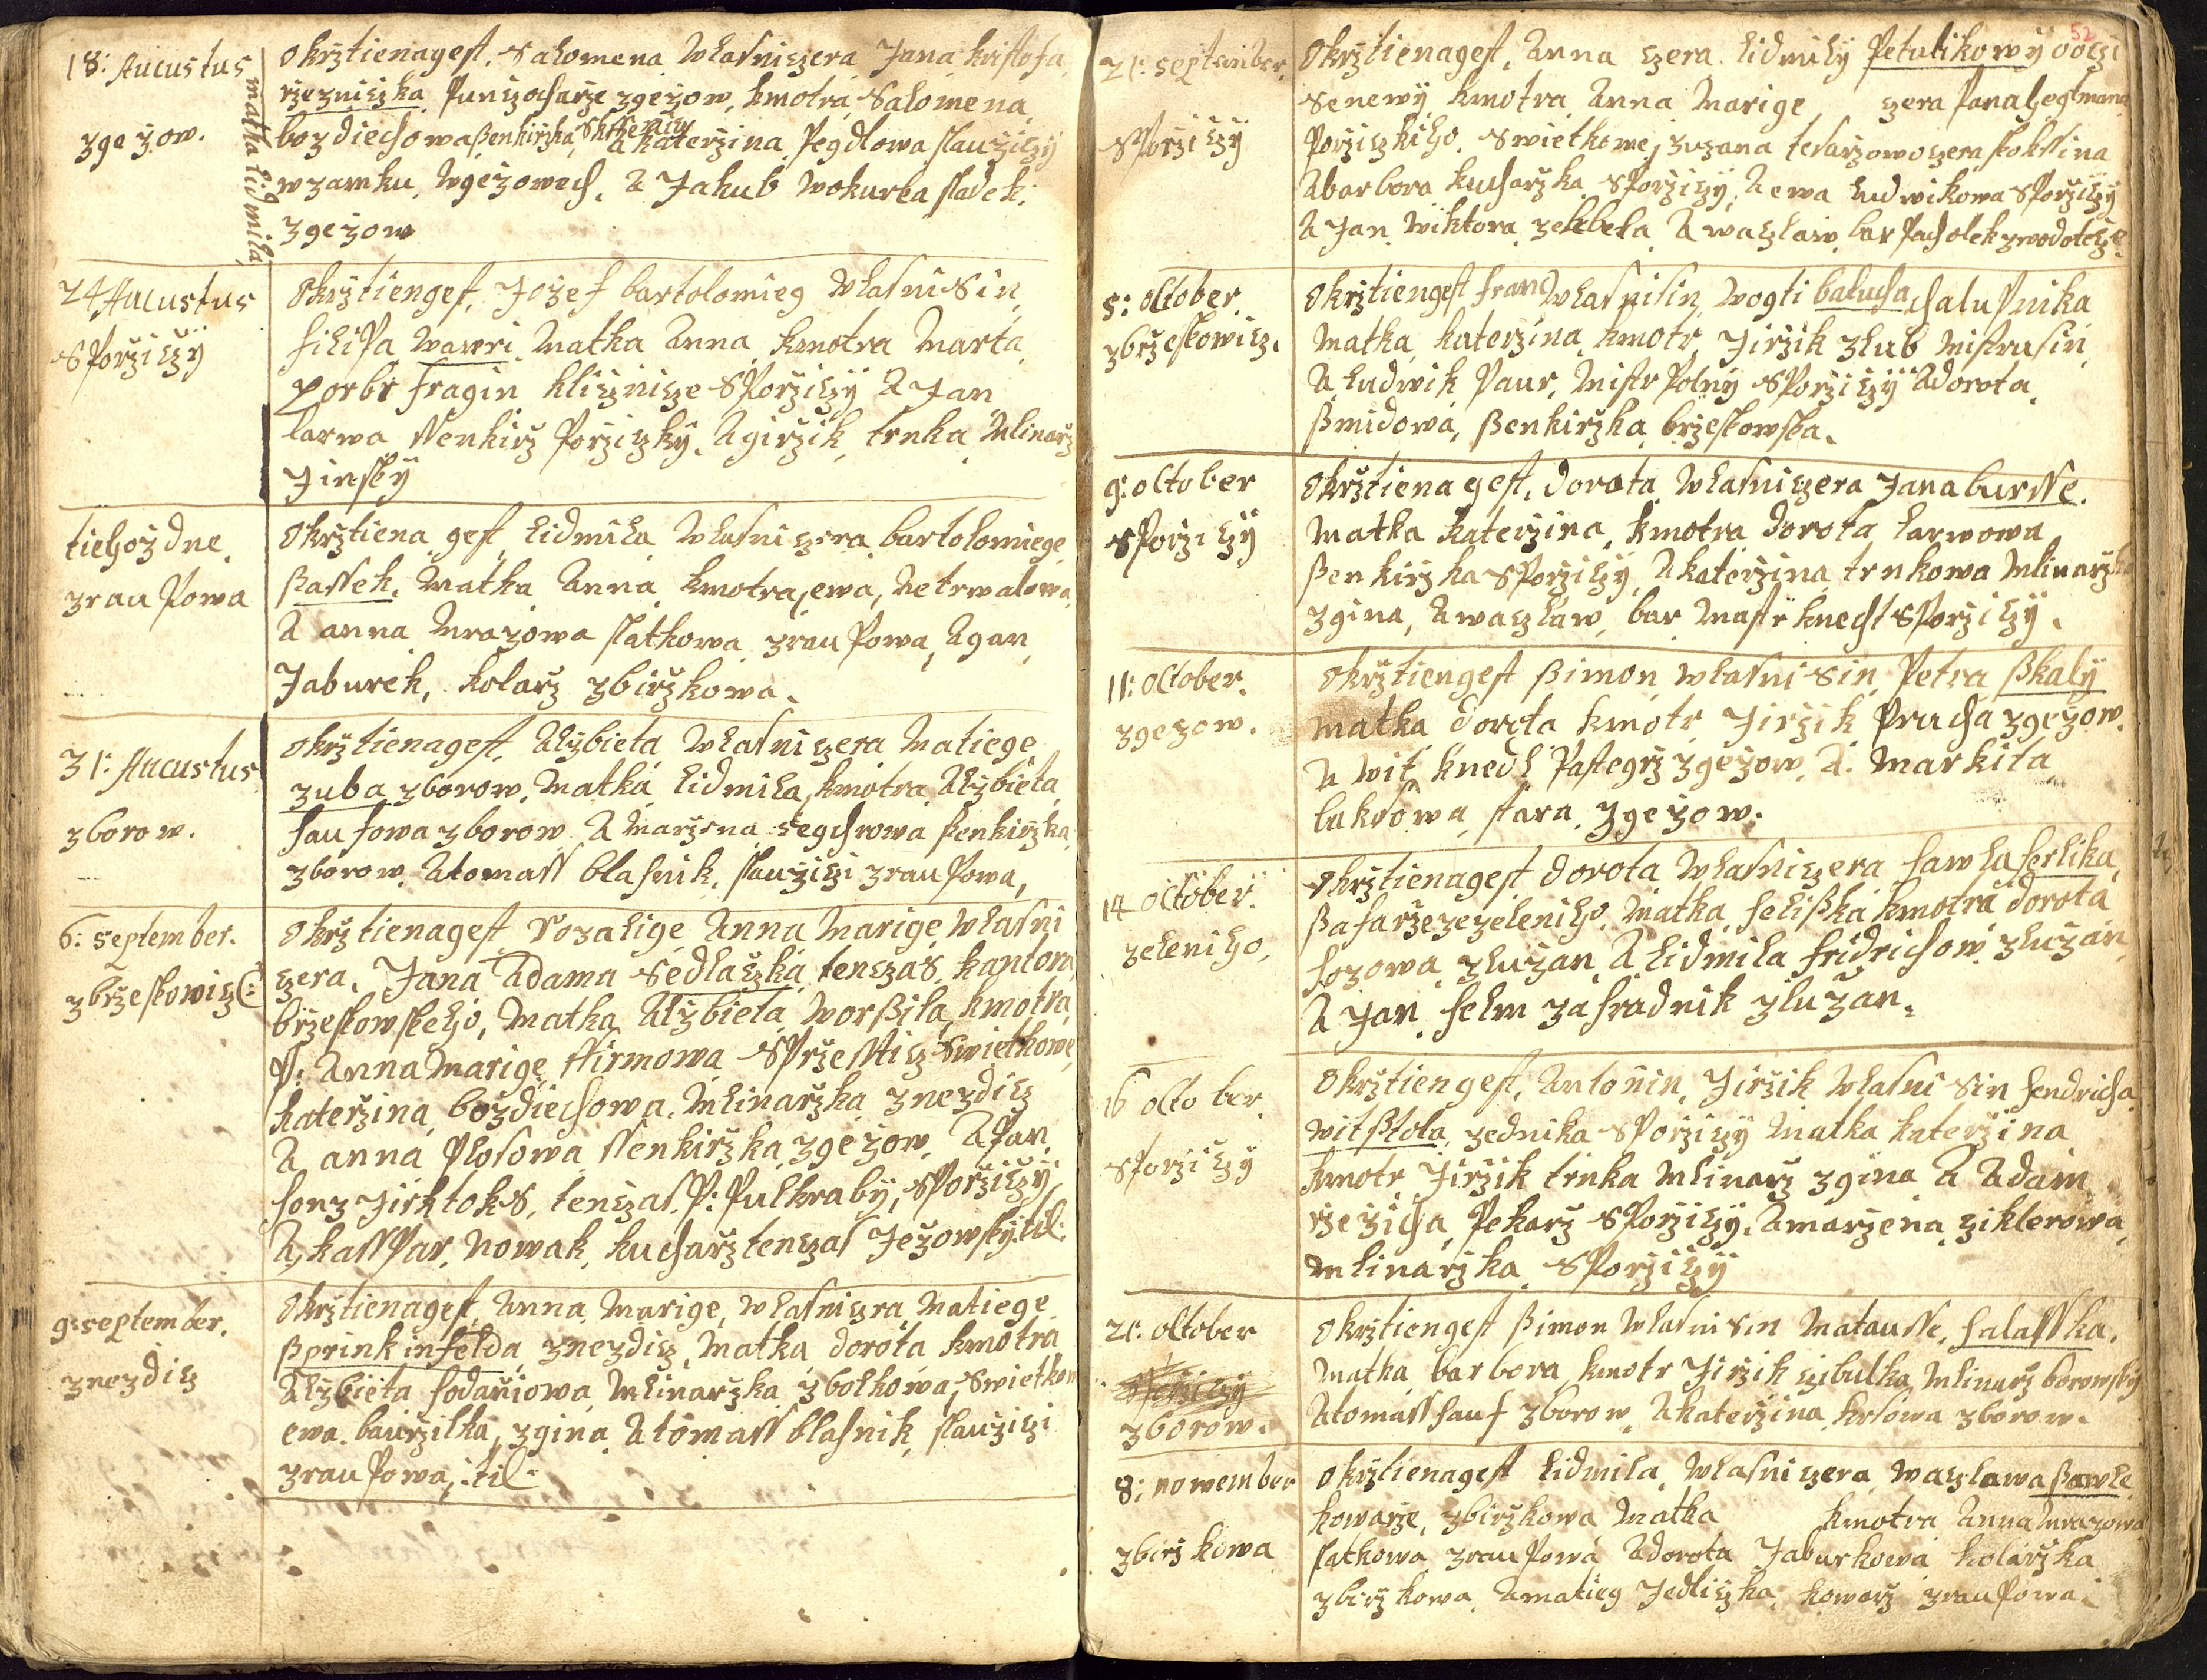 18: Aucustus
zge zow.
matka Lidmila
okrztienagest. Salomena wlasniczera Jana kristofa
rzezniczka Punczocharze zgezow, kmotra Salomena
bozdiechowa ßenkirzka, a katerzina Pegdlowa slauziczy
wzamku wgezowech, a Jakub wokurka sladek
zgezow
24 Aucustus
SPorziczy
okrztiengest, Jozef bartolomieg wlasni Sin
filipa wawri Matka Anna kmotra Marta
fragin klicznicze SPorziczy a Jan
larwa ssenkirz Porziczky, a girzik trnka Mlinarz
Jinsky
tiehozdne
zrauPowa
okrztiena gest Lidmila wlasni czera bartolomiege
ßassek, Matka Anna kmotra, ewa, Netrwalowa
a anna Mrazowa slatkowa zrauPowa, a gan
Jaburek, kolarz zbirzkowa.
31: Aucustus
zborow.
okrztienagest, Alzbieta wlasni czera Matiege
zuba zborow, Matka Lidmila, kmotra Alzbieta
haufowa zborow a Marzena segchrowa ßenkirzka
zborow, a tomass blasnik, slauziczi zrauPowa,
6: september.
zbrzeskowicz
okrztienagest, Rozalige Anna Marige wlasni
czera, Jana Adama Sedlaczka tenczas kantora
brzeskowskeho, Matka Alzbieta worßila, kmotra
P: Anna Marige Hirmowa SPrzessticz Swietkowe
katerzina bozdiechowa, Mlinarzka znezdicz
a anna Plosowa ssenkirzka zgezow, a Pan
honz Jirktoks, tenczas P: Pulkraby, SPorziczy,
a, kassPar, Nowak, kucharz tenczas Jezowsky til:
9: september.
znezdicz
okrztienagest, Anna Marige, wlasniczra Matiege
ßprinkinfelda znezdicz, Matka dorota kmotra
Alzbieta hodaniowa Mlinarzka zbolkowa, Swietkow
ewa baurzilka, zgina a tomass blasnik, slauziczi
zrauPowa, :til:
52
21: september.
SPorziczy
okrztienagest, Anna czera Lidmily Petulikowy
Senewy kmotra Anna Marige czera Pana hegtmana
Porziczkiho. Swietkowe, zuzana tesarzowo czera
a barbora kucharzka SPorziczy, a ewa Ludwikowa SPorziczy
a Jan wiktora zekbeta a waczlaw bar Pacholek
5: october.
zbrzeskowicz.
okrztiengest franc wlasnisin, wogti balucha chaluPnika
Matka katerzina kmotr Jirzik zlub Mistrusin
a Ludwik Paur, Mistr Polny SPorziczy a dorota
ßmidowa, ßenkirzka brzeskowska.
9: october
SPorziczy
okrztiena gest, dorota wlasniczera Jana bursse.
Matka katerzina, kmotra dorota Larwowa
ßenkirzka SPorziczy, a katerzina trnkowa Mlinarzka
zgina, a waczlaw, bar Mastrknecht SPorziczy.
11: october.
zgezow.
okrztiengest ßimon wlasni sin Petra ßkaly
matka dorota kmotr Jirzik Prucha zgezow.
a wit knedl Pastegrz zgezow, a: Markita
luksowa stara zgezow.
14 october.
zeleniho.
okrztienagest dorota wlasniczera hawla ferlika
ßafarze zezeleniho, Matka felißka kmotra dorota
hozowa zluzan a Lidmila fridrichow zluzan
a Jan helm zahradnik zluzan.
16 october.
SPorziczy
okrztiengest, Antonin, Jirzik wlasni Sin hendricha
witßtola zednika SPorziczy Matka katerzina
kmotr Jirzik trnka Mlinarz zgina a Adam
rzezicha, Pekarz SPorziczy, a marzena ziklerowa
Mlinarzka SPorziczy
21: october
zborow.
okrztiengest ßimon wlasni Sin Matausse, halasska.
Matka barbora, kmotr Jirzik czibulka Mlinarz borowsky
a tomass hauf zborow, a katerzina krsowa zborow.
8: nowember
zbirzkowa
okrztienagest Lidmila, wlasniczera, waczlawa ßawle
kowarze, zbirzkowa Matka kmotra Anna Mrazowa
slatkowa zrauPowa a dorota Jaburkowa kolarzka
zbirzkowa a matieg Jedliczka kowarz zrauPowa